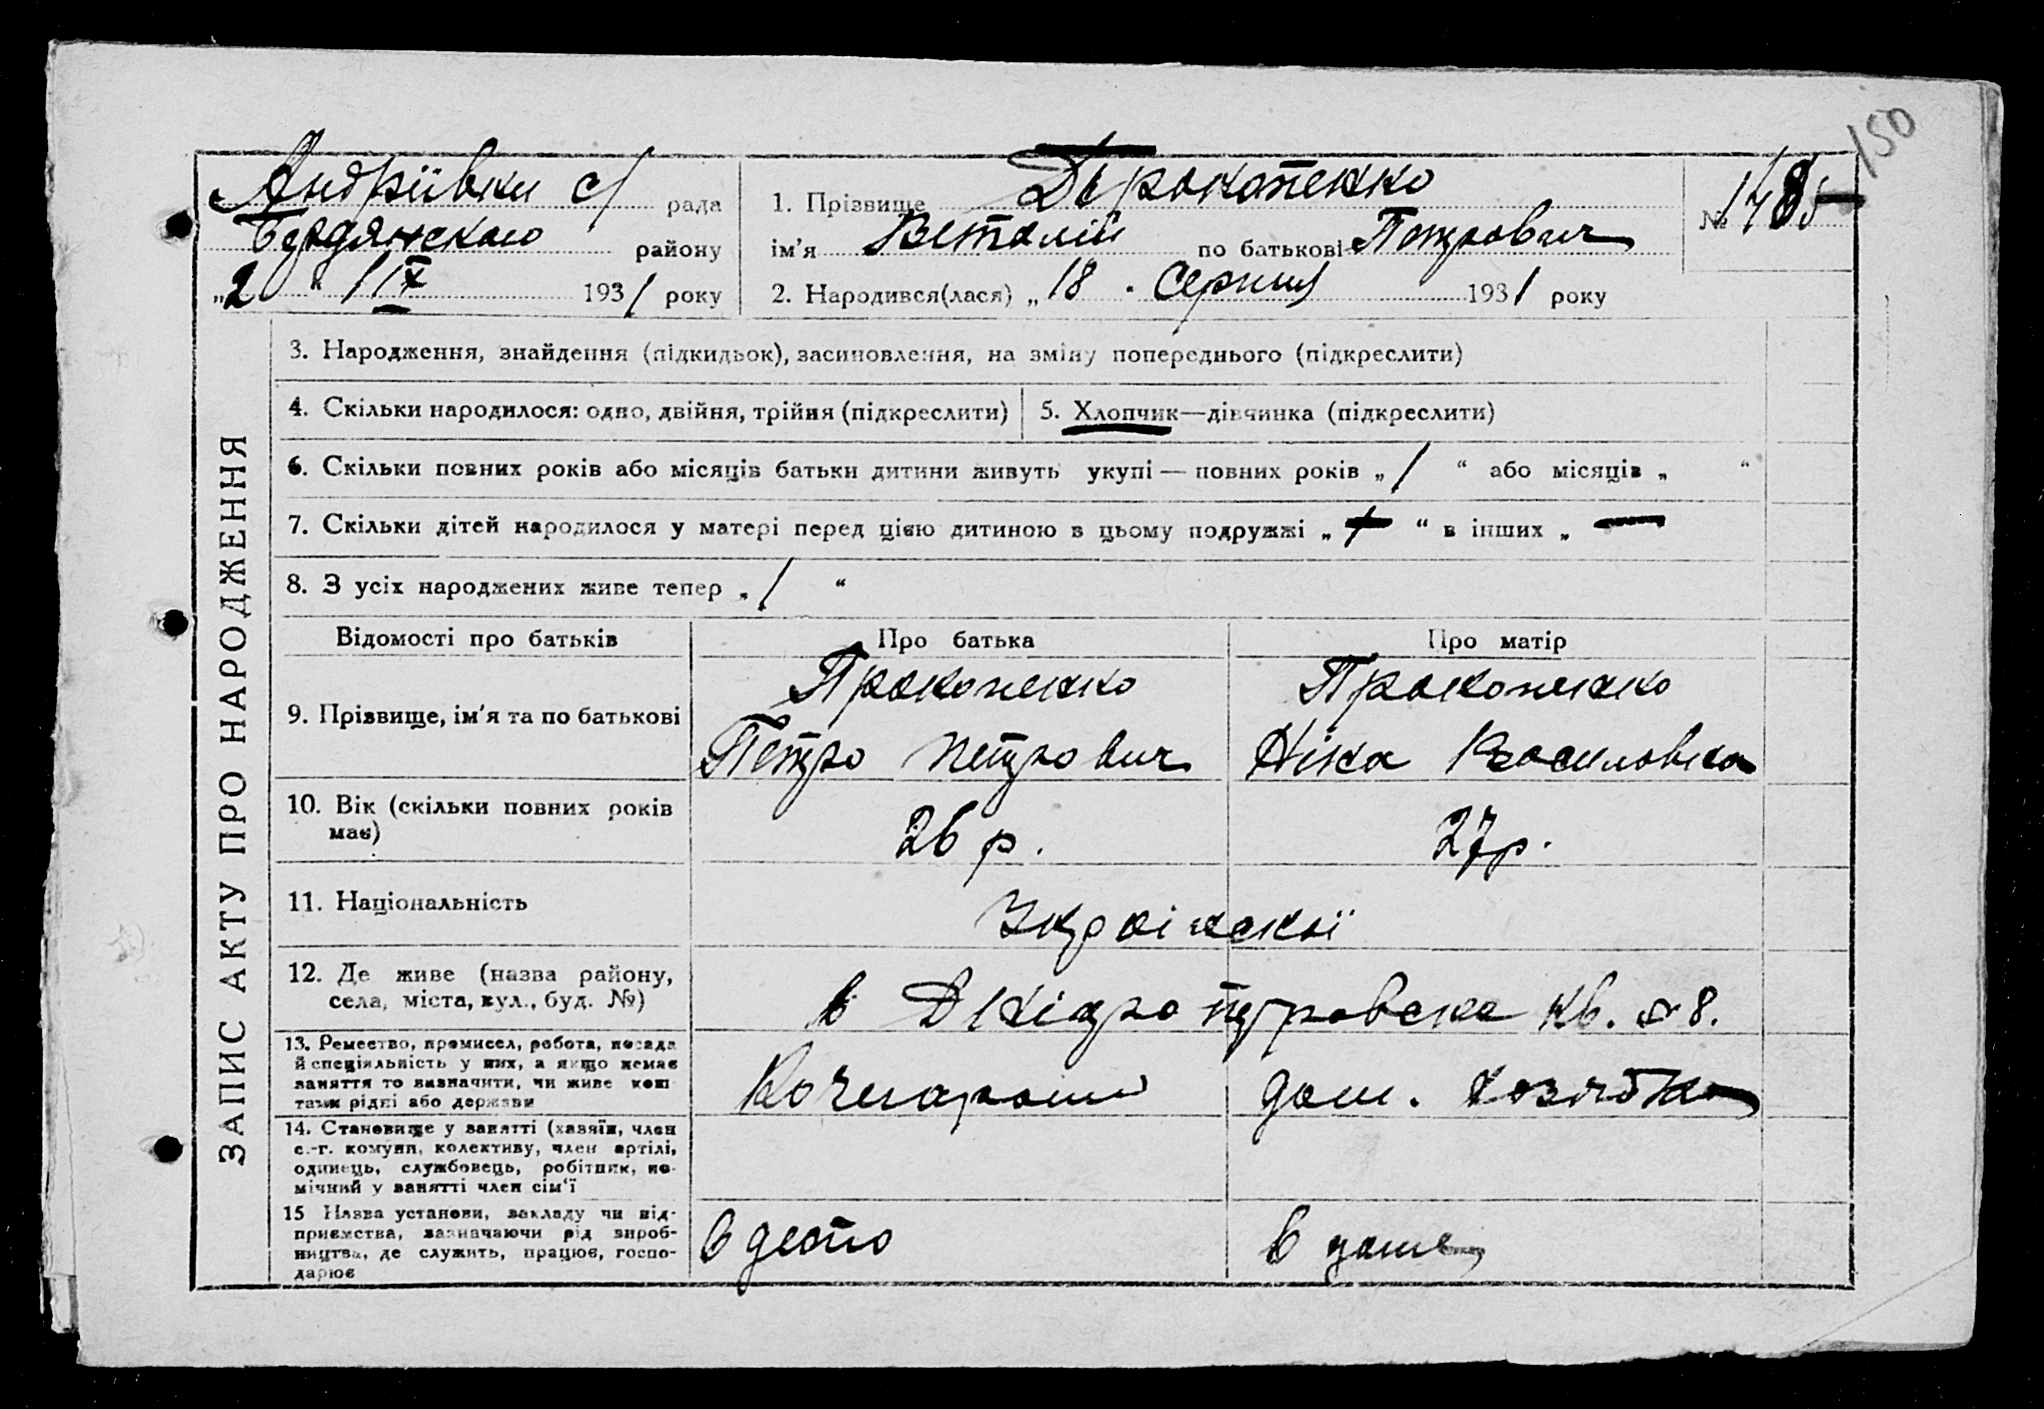 150
Андріївки с/ рада
Бердянського району
„2“ / IX 1931 року
1. Прізвище Прокопенко
ім'я Віталій по батькові Петрович
2. Народився(лася) „18“ Серпня 1931 року
№
ЗАПИС АКТУ ПРО НАРОДЖЕННЯ
3. Народження, знайдення (підкидьок), засиновлення, на зміну попереднього (підкреслити)
4. Скільки народилося: одно, двійня, трійня (підкреслити)
5. Хлопчик—дівчинка (підкреслити)
6. Скільки повних років або місяців батьки дитини живуть укупі — повних років „1“ або місяців „ “
7. Скільки дітей народилося у матері перед цією дитиною в цьому подружжі „ “ в інших „ —
8. З усіх народжених живе тепер „1“
Відомості про батьків
Про батька
Про матір
9. Прізвище, ім'я та по батькові
Прокопенко
Петро Петрович
Прокопенко
Ніна Василовна
10. Вік (скільки повних років
має)
26 р.
27 р.
11. Національність
Українскої
12. Де живе (назва району,
села, міста, вул., буд. №)
в Дніпропетровске кв. 8.
13. Ремество, промисел, робота, посада
й спеціяльність у них, а якщо немає
заняття то визначити, чи живе кош
тами рідні або держави
Кочегаром
дом. хозяйка
14. Становище у занятті (хазяїн, член
с.-г. комуни, колективу, член артілі,
одинець, службовець, робітник, по-
мічний у занятті член сім'ї
15 Назва установи, закладу чи під-
приємства, зазначаючи рід вироб-
ництва, де служить, працює, госпо-
дарює
в депо
в доме